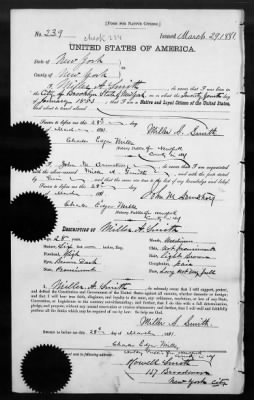 [FORM FOR NATIVE CITIZEN.]
No. 239 Issued March 29 1881
UNITED STATES OF AMERICA.
State of New York
County of New York
I, Miller A. Smith, do swear that I was born in
the City of Brooklyn State of New York on the
day
of January 1853, that I am a Native and Loyal Citizen of the United
States
Sworn to before me this 28th day
of March 1881
Miller A. Smith
Charles Edgar Mills
Notary Public
I, John M. do swear that I am acquainted
with the above-named Miller A. Smith, and with the facts stated
by him are true to the best of my knowledge and belief.
Sworn to before me this 28th day
of March 1881
John M.
Charles Edgar Mills
Notary Public
DESCRIPTION OF Miller A. Smith
Age, 28 years Mouth, Medium
Stature, Chin, not prominent
Forehead, High Hair, Light Brown
Eyes, Complexion, Fair
Nose, Prominent Face, Long not full
I, Miller A. Smith, do solemnly swear that I will support, protect, and
defend the Constitution and Government of the United States against all enemies, whether domestic or foreign;
and that I will bear true faith, allegiance, and loyalty to the same, any ordinance, resolution, or law of any State,
Convention, or Legislature to the contrary notwithstanding; and further, that I do this with a full determination,
pledge, and purpose, without any mental reservation or evasion whatsoever; and further, that I will well and faithfully
perform all the duties which may be required of me by law: So help me God.
Miller A. Smith
Sworn to before me this 28th day of March 1881
Charles Edgar Mills
Howell Smith
Broadway
New York City